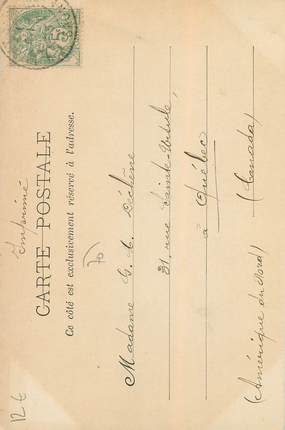 Imprimé
CARTE POSTALE
Ce côté est exclusivement réservé à l'adresse.
70
Madame G. E. Dechêne
31, rue Sainte-Ursule,
à Québec
(Canada)
(Amérique du Nord)
12 €